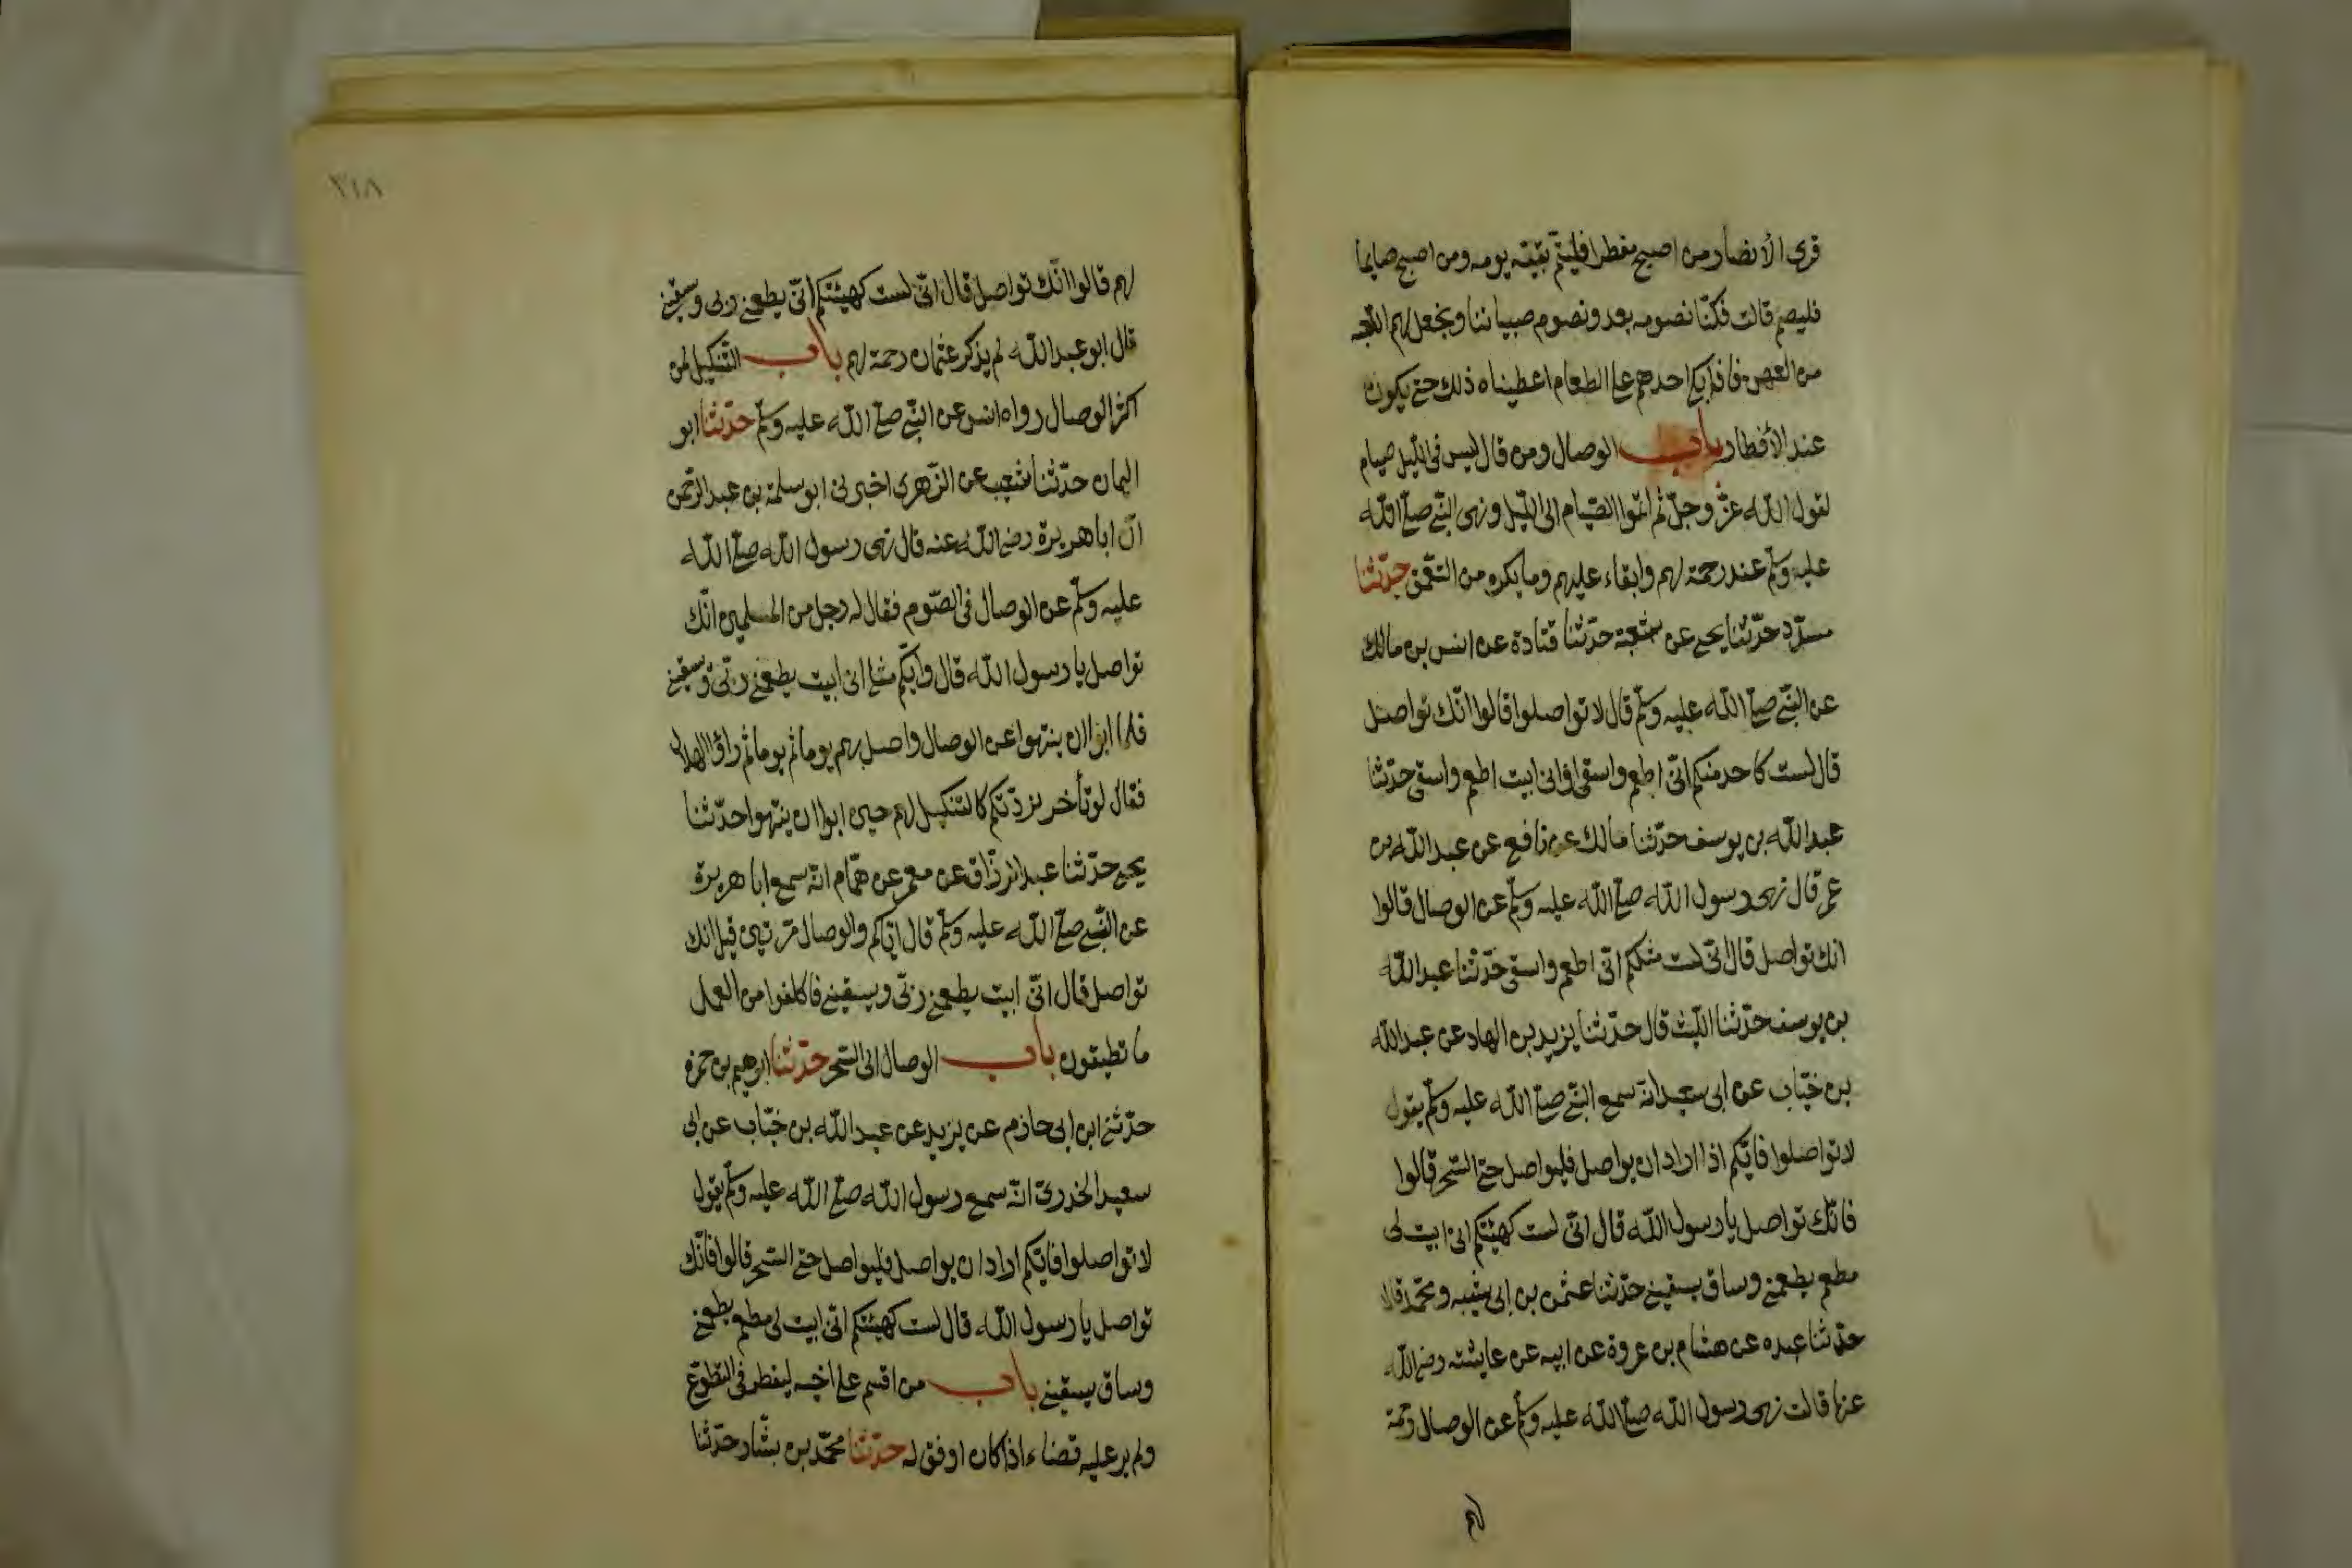 قرى الأنصار من اصبح مفطرا فليتمّ بقيّة يومه ومن اصبح صايما
فليصم قالت فكنّا نصومه بعد ونصوم صبياننا ونجعل لهم اللعبه
من العهن فاذا بكا احدهم على الطعام اعطيناه ذلك حتى يكون
عند الأفطار باب الوصال ومن قال ليس فى الليل صيام
لقول الله عزّ وجلّ ثم اتمّوا الصّيام الى الليل ونهى النبّى صلى الله
عليه وسلّم عنه رحمة لهم وابقاء عليهم وما يكره من التعمّق حدّثنا
مسدّد حدّثنا يحيى عن شعبة حدّثنا قتادة عن انس بن مالك
عن النبّى صلّى الله عليه وسلّم قال لا تواصلوا قالوا انّك تواصل
قال لست كاحد منكم انّى اطعم واسقى او انى ابيت اطعم واسقى حدّثنا
عبد الله بن يوسف حدّثنا مالك عن نافع عن عبد الله بن
عمر قال نهى رسول الله صلّى الله عليه وسلّم عن الوصال قالوا
انك تواصل قال انّى لست مثلكم انّى اطعم واسقى حدّثنا عبد الله
بن يوسف حدّثنا اللّيث قال حدّثنا يزيد بن الهاد عن عبد الله
بن خبّاب عن ابى سعيد انّه سمع النبّى صلّى الله عليه وسلّم يقول
لا تواصلوا فايّكم اذا اراد ان يواصل فليواصل حتى السّحر قالوا
فانّك تواصل يا رسول الله قال انّى لست كهيئتكم انى ابيت لى
مطعم يطعمنى وساق يسقينى حدّثنا عثمن بن ابى شيبه ومحمّد قالا
حدّثنا عبده عن هشام بن عروة عن ابيه عن عايشة رضى الله
عنها قالت نهى رسول الله صلّى الله عليه وسلّم عن الوصال رحمة
لهم
٣١٨
لهم قالوا انّك تواصل قال انّى لست كهيئتكم انّى يطعمنى ربى ويسقين
قال ابو عبد الله لم يذكر عثمان رحمة لهم باب التّنكيل لمن
اكثر الوصال رواه انس عن النبّى صلى الله عليه وسلّم حدّثنا ابو
اليمان حدّثنا شعيب عن الزّهرى اخبرنى ابو سلمة بن عبد الرّحمن
انّ ابا هريرة رضى الله عنه قال نهى رسول الله صلّى الله
عليه وسلّم عن الوصال فى الصّوم فقال له رجل من المسلمين انّك
تواصل يا رسول الله قال وايّكم مثلى انى ابيت يطعمنى ربّى ويسقين
فلما ابوا ان ينتهوا عن الوصال واصل بهم يوما ثم يوما ثم راوا الهلال
فقال لو تأخر لزدتّكم كالتنكيل لهم حين ابوا ان ينتهوا حدّثنا
يحيى حدّثنا عبد الرزّاق عن معمر عن همّام انّه سمع ابا هريرة
عن النبّى صلّى الله عليه وسلّم قال ايّاكم والوصال مرّتين قيل انك
تواصل قال انّى ابيت يطعمنى ربّى ويسقينى فاكلفوا من العمل
ما تطيقون باب الوصال الى السّحر حدّثنا ابرهيم بن حمزه
حدّثنى ابن ابى حازم عن يزيد عن عبد الله بن خبّاب عن ابى
سعيد الخدرىّ انّه سمع رسول الله صلّى الله عليه وسلّم يقول
لا تواصلوا فايّكم اراد ان يواصل فليواصل حتى السّحر قالوا فانّك
تواصل يا رسول الله قال لست كهيئتكم انّى ابيت لى مطعم يطعمنى
وساق يسقينى باب من اقسم على اخيه ليفطر فى التّطوّع
ولم ير عليه قضاء اذا كان اوفق له حدّثنا محمّد بن بشّار حدّثنا